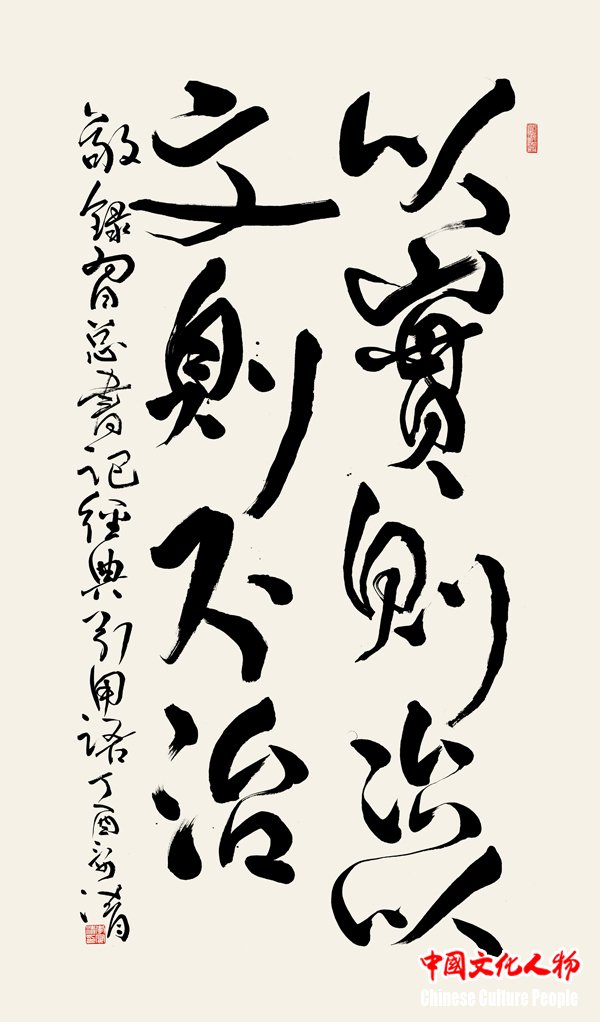 以實則治以
文則不治
敬錄習總書記經典引用語丁酉
中國文化人物
Chinese Culture People